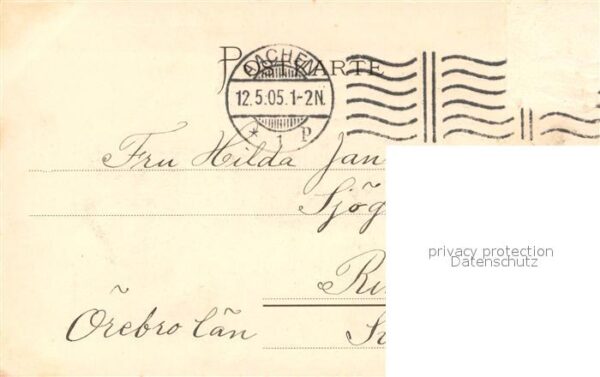 POSTKARTE
AACHEN
12.5.05.1-2N.
* 1 p
Fru Hilda Jan
Sjög
privacy protection
Datenschutz
Örebro län